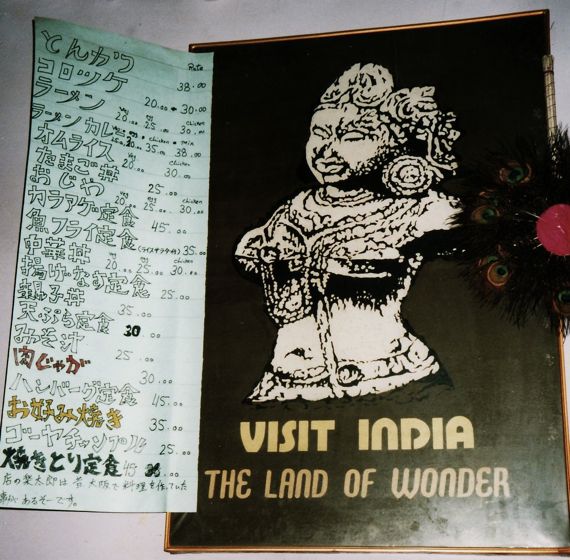 とんかつ Rate
コロッケ 38.00
ラーメン veg 20.00 30.00
ラーメンカレー veg 20.00 25.00 chicken 30.00
オムライス 35.00 38.00
たまご丼 veg 20.00 chicken 30.00
おじや 25.00
カラアゲ定食 veg 20.00 25.00 chicken 30.00
魚フライ定食 45.00
中華丼 (ライスサラダ付) 35.00
揚げなす定食 20.00 25.00 chicken 30.00
親子丼 25.00
天ぷら定食 35.00
みそ汁 30.00
肉じゃが 25.00
ハンバーグ定食 30.00
お好み焼き 45.00
ゴーヤチャンプル 35.00
焼きとり定食 25.00
店の楽太郎は昔大阪で料理を作っていた
事があるそーです。
VISIT INDIA
THE LAND OF WONDER